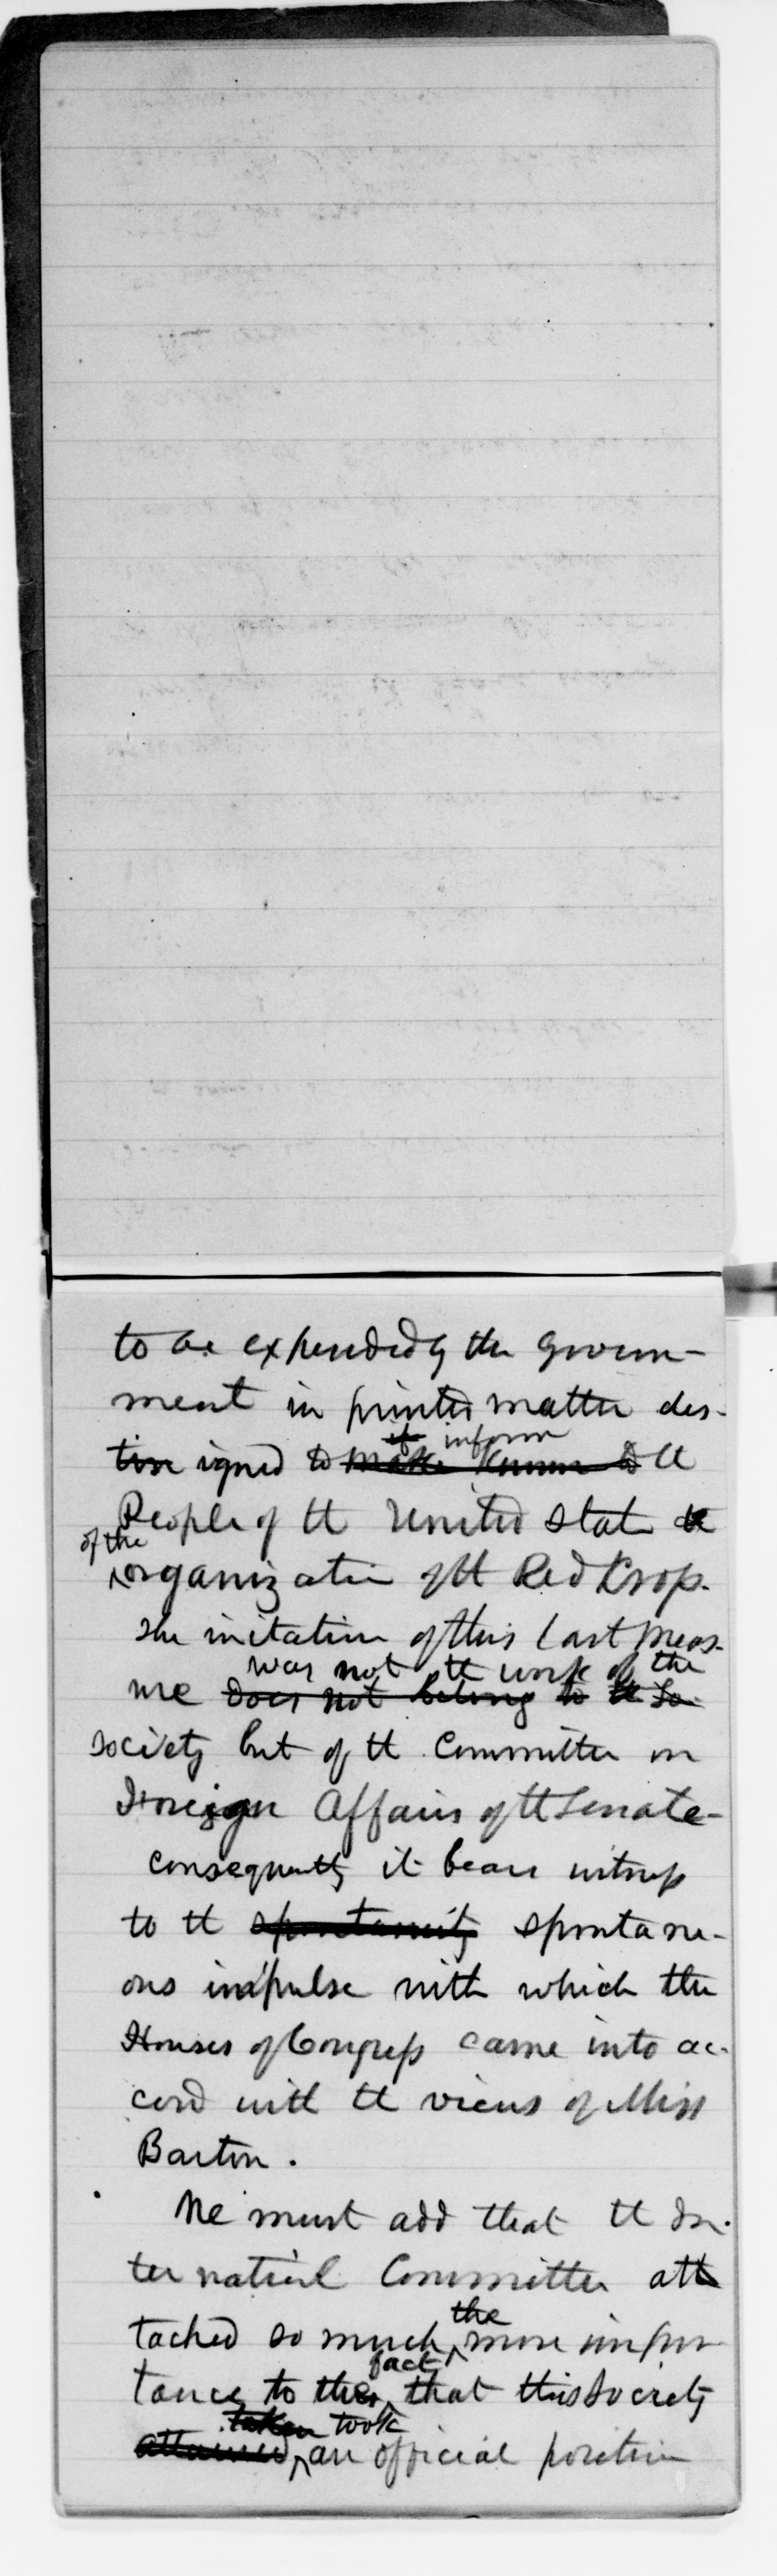 to be expended by the govern-
ment in printed matter des-
tine igned to make known to if inform tt
People of tt United State te
of the organization of tt Red Cross.
The initation of this last meas-
ure does not belong to tt So- was not tt work of the
Society but of tt Committee on
Foreign Affairs of tt Senate-
consequently it bears witness
to tt spontaneity spontane-
ous impulse with which the
Houses of Congress came into ac-
cord with tt views of Miss
Barton.
We must add that tt In-
ternational Committee att
tached so much the more impor
tance to the fact that this Society
attained taken took an official position